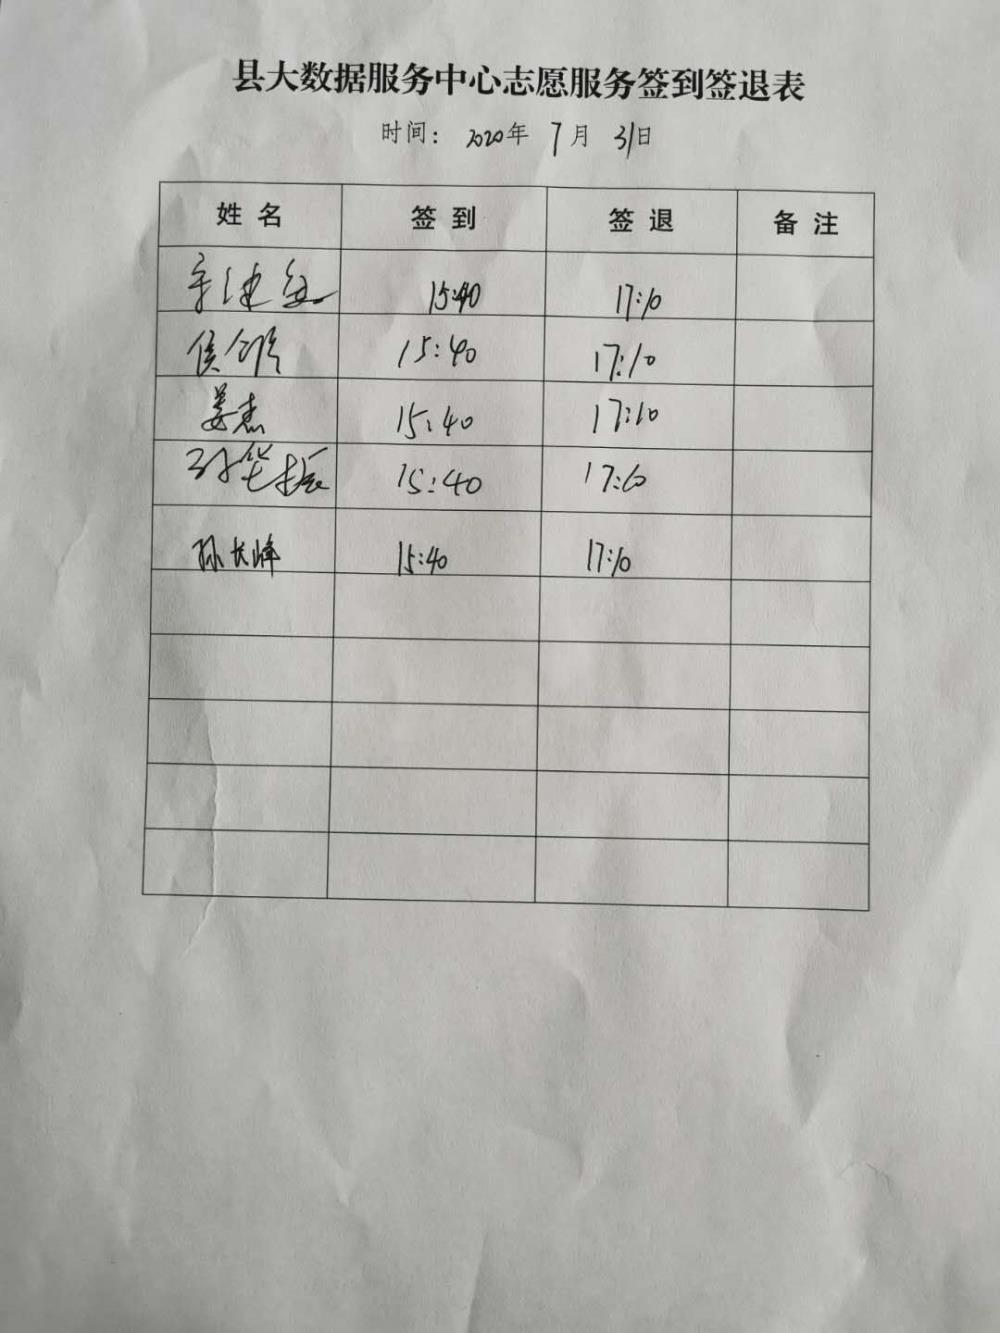 县大数据服务中心志愿服务签到签退表
时间： 2020年 7月 31日
姓名 签到 签退 备注
15:40 17:10
15:40 17:10
姜杰 15:40 17:10
15:40 17:10
孙长峰 15:40 17:10